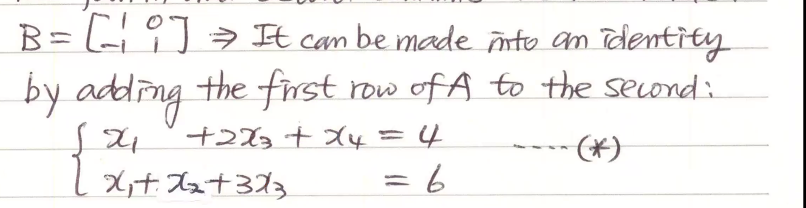 B = [1 0; -1 1] ⇒ It can be made into an identity
by adding the first row of A to the second:
{ x₁ +2x₃ + x₄ = 4 ----(*)
x₁+x₂+3x₃ = 6